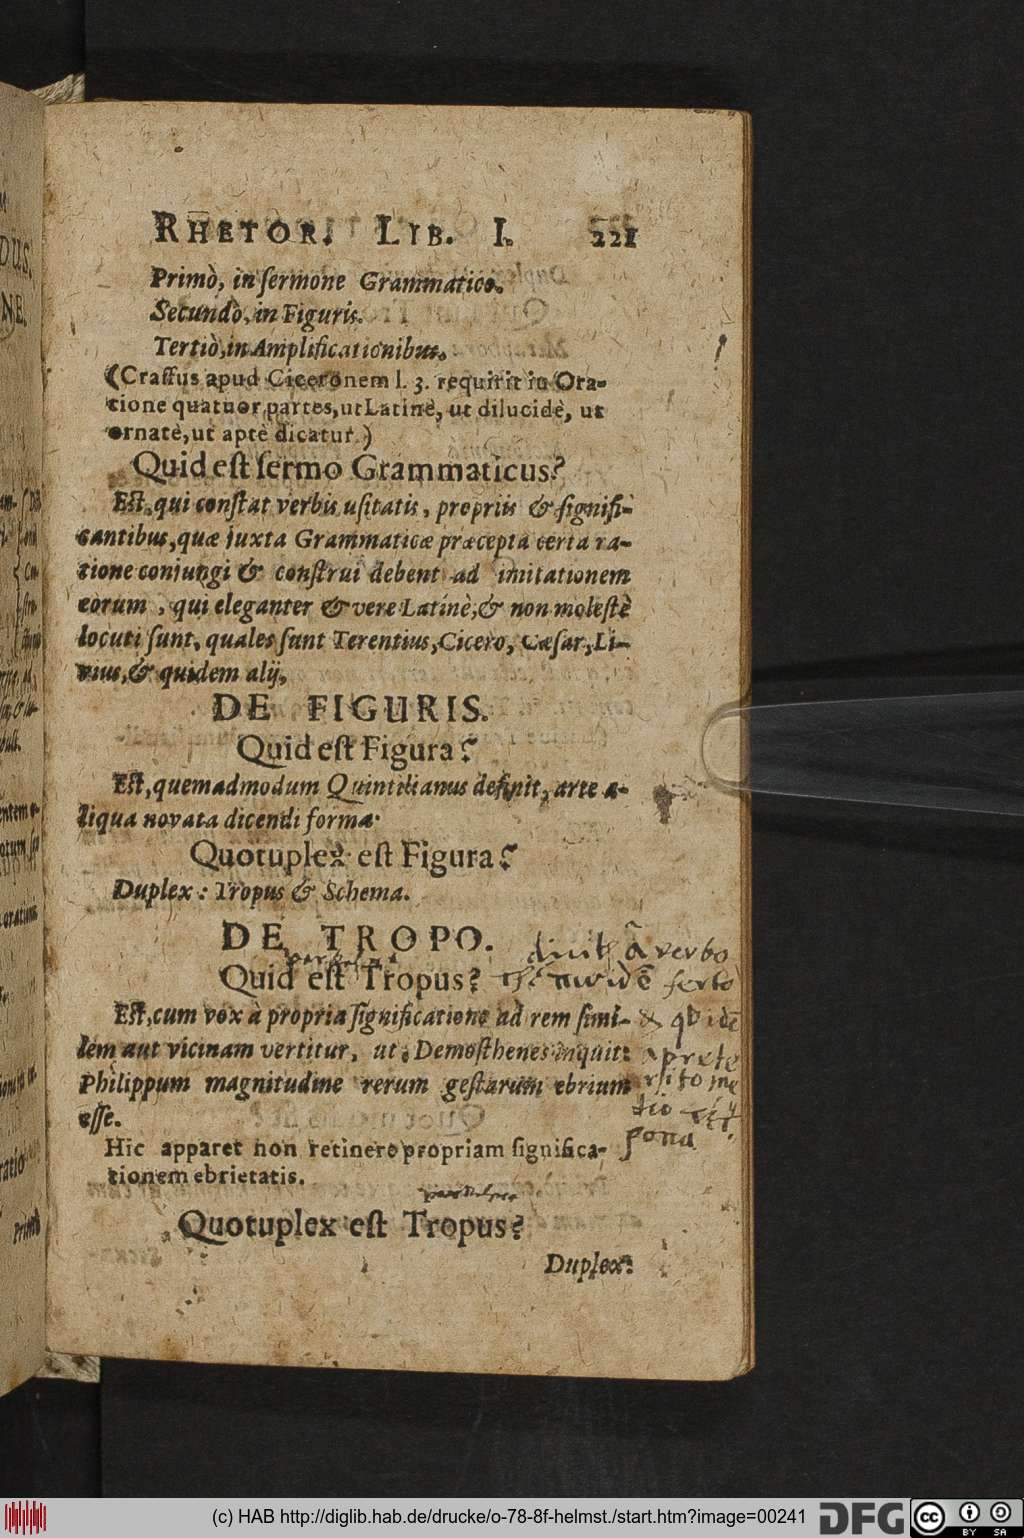 RHETOR. LIB. I. 221
Primò, in ſermone Grammatico.
Secundò, in Figuris.
Tertiò, in Amplificationibus.
(Craſſus apud Ciceronem l. 3. requirit in Ora-
tione quatuor partes, ut Latinè, ut dilucidè, ut
ornatè, ut aptè dicatur.)
Quid eſt ſermo Grammaticus?
Eſt, qui conſtat verbis uſitatis, propriis & ſignifi-
cantibus, quæ juxta Grammaticæ præcepta certa ra-
tione conjungi & conſtrui debent ad imitationem
eorum, qui eleganter & vere Latinè, & non moleſtè
locuti ſunt, quales ſunt Terentius, Cicero, Cæſar, Li-
vius, & quidem alij.
DE FIGURIS.
Quid eſt Figura?
Eſt, quemadmodum Quintilianus definit, arte a-
liqua novata dicendi forma.
Quotuplex eſt Figura?
Duplex: Tropus & Schema.
DE TROPO.
à verbo
Quid eſt Tropus?
Eſt, cum vox à propria ſignificatione ad rem ſimi-
lem aut vicinam vertitur, ut, Demoſthenes inquit:
Philippum magnitudine rerum geſtarum ebrium
eſſe.
Hic apparet non retinere propriam ſignifica-
tionem ebrietatis.
Quotuplex eſt Tropus?
Duplex:
(c) HAB http://diglib.hab.de/drucke/o-78-8f-helmst./start.htm?image=00241
DFG
cc BY SA